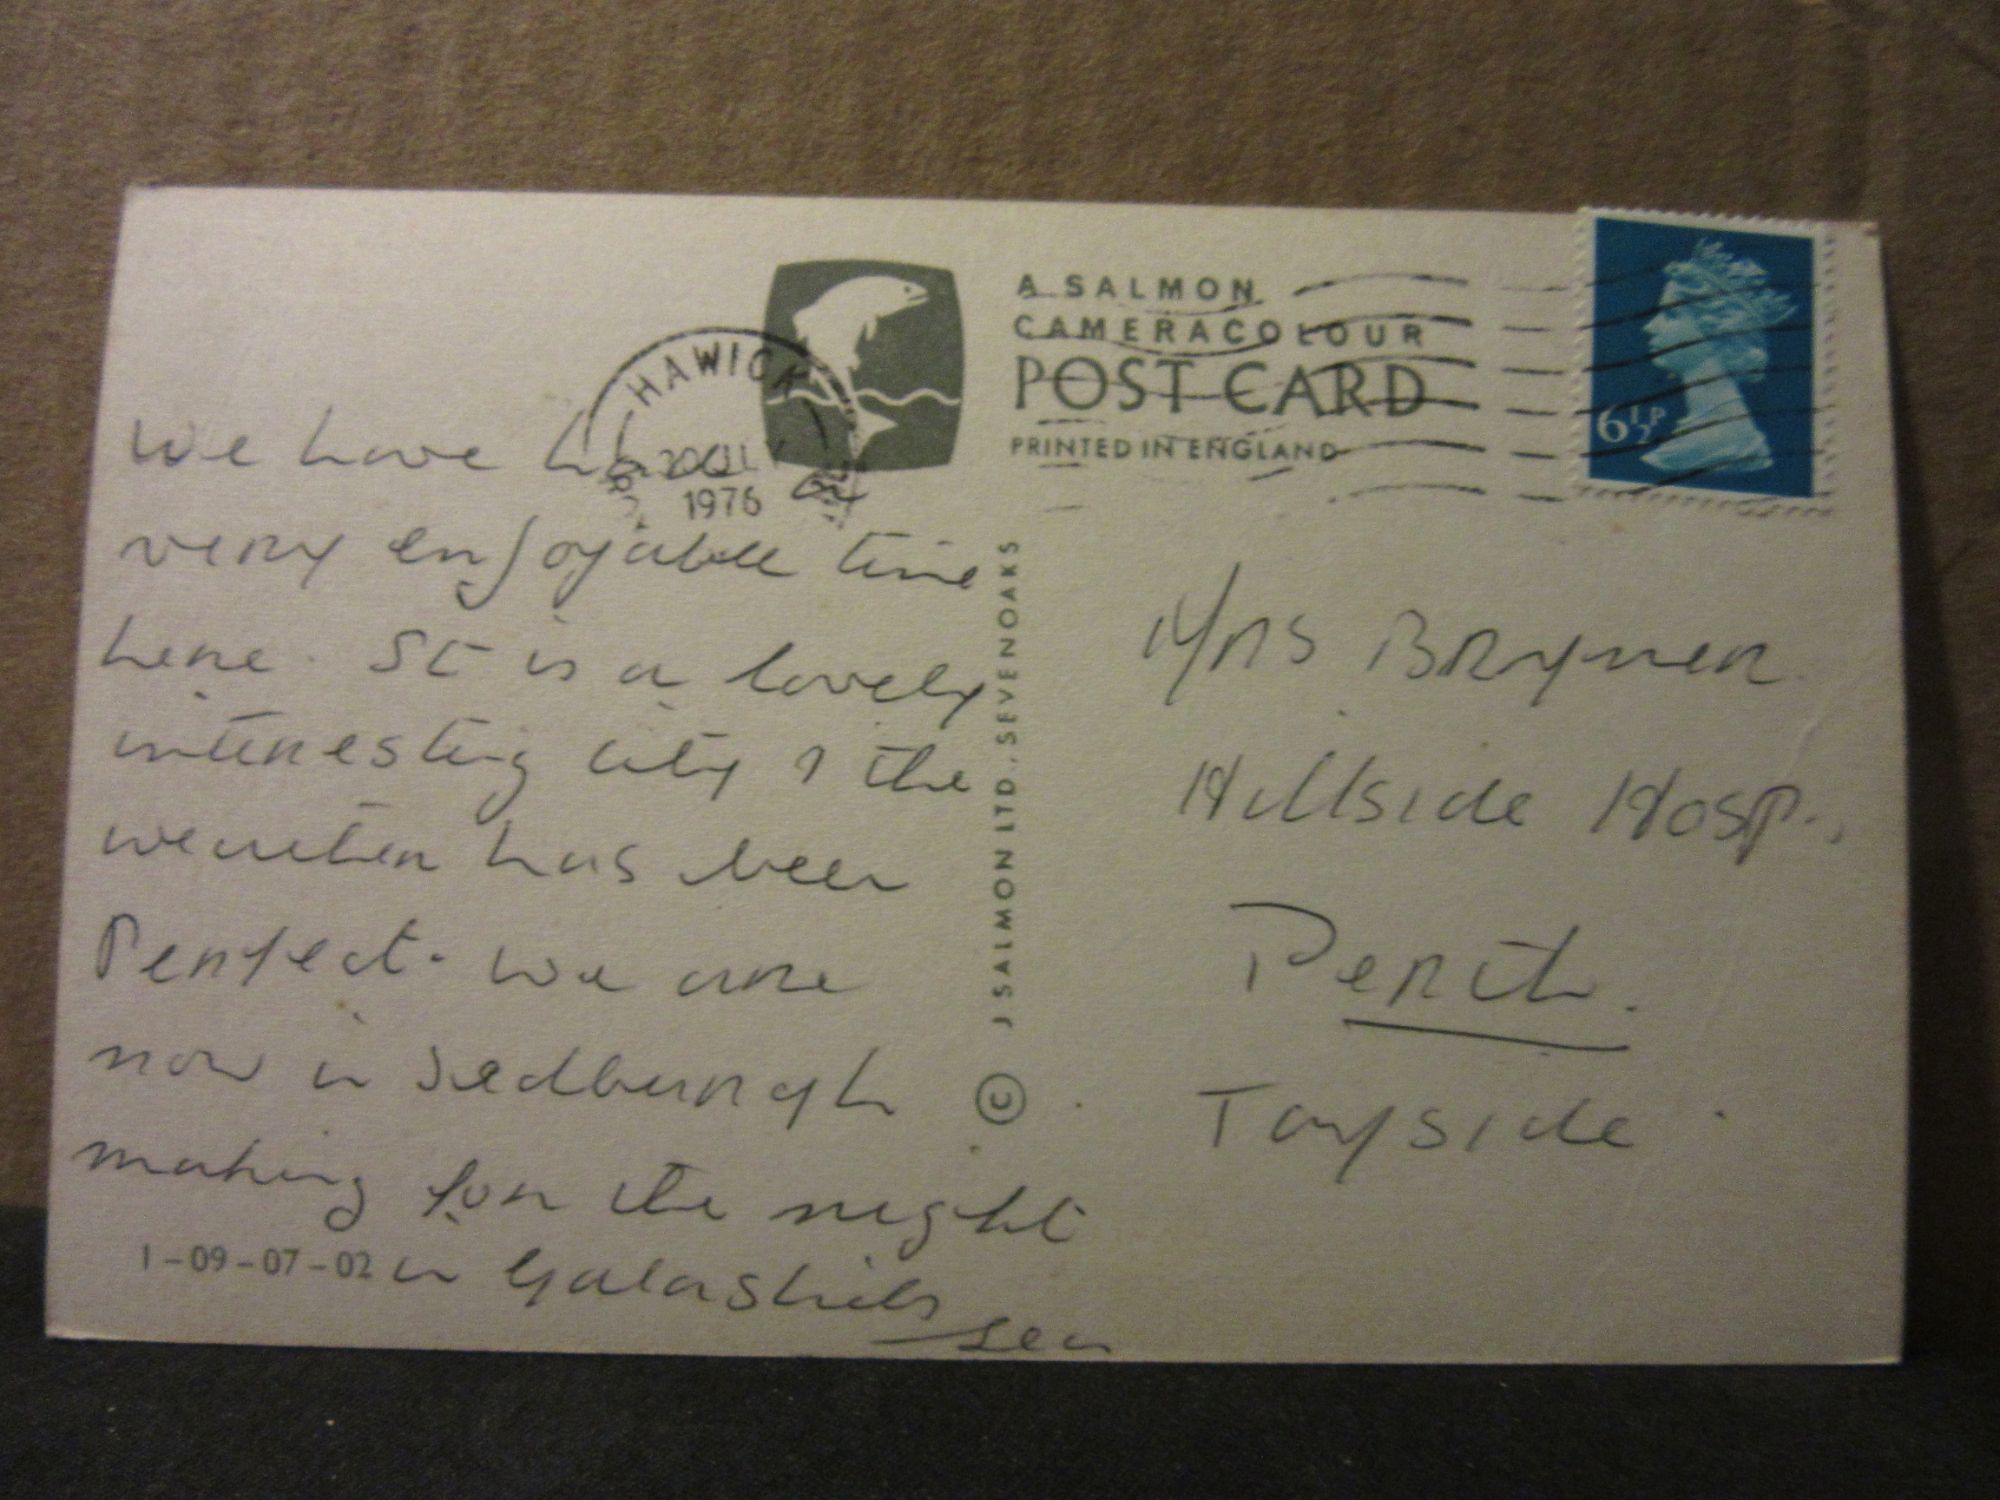 A SALMON
CAMERACOLOUR
POST CARD
PRINTED IN ENGLAND
6½P
HAWICK
20 JLY
1976
We have had a
very enjoyable time
here. It is a lovely
interesting city & the
weather has been
Perfect. We are
now in Jedburgh
making for the night
in Galashiels
1-09-07-02
© J SALMON LTD., SEVENOAKS
Mrs Brymer
Hillside Hosp.,
Perth.
Tayside